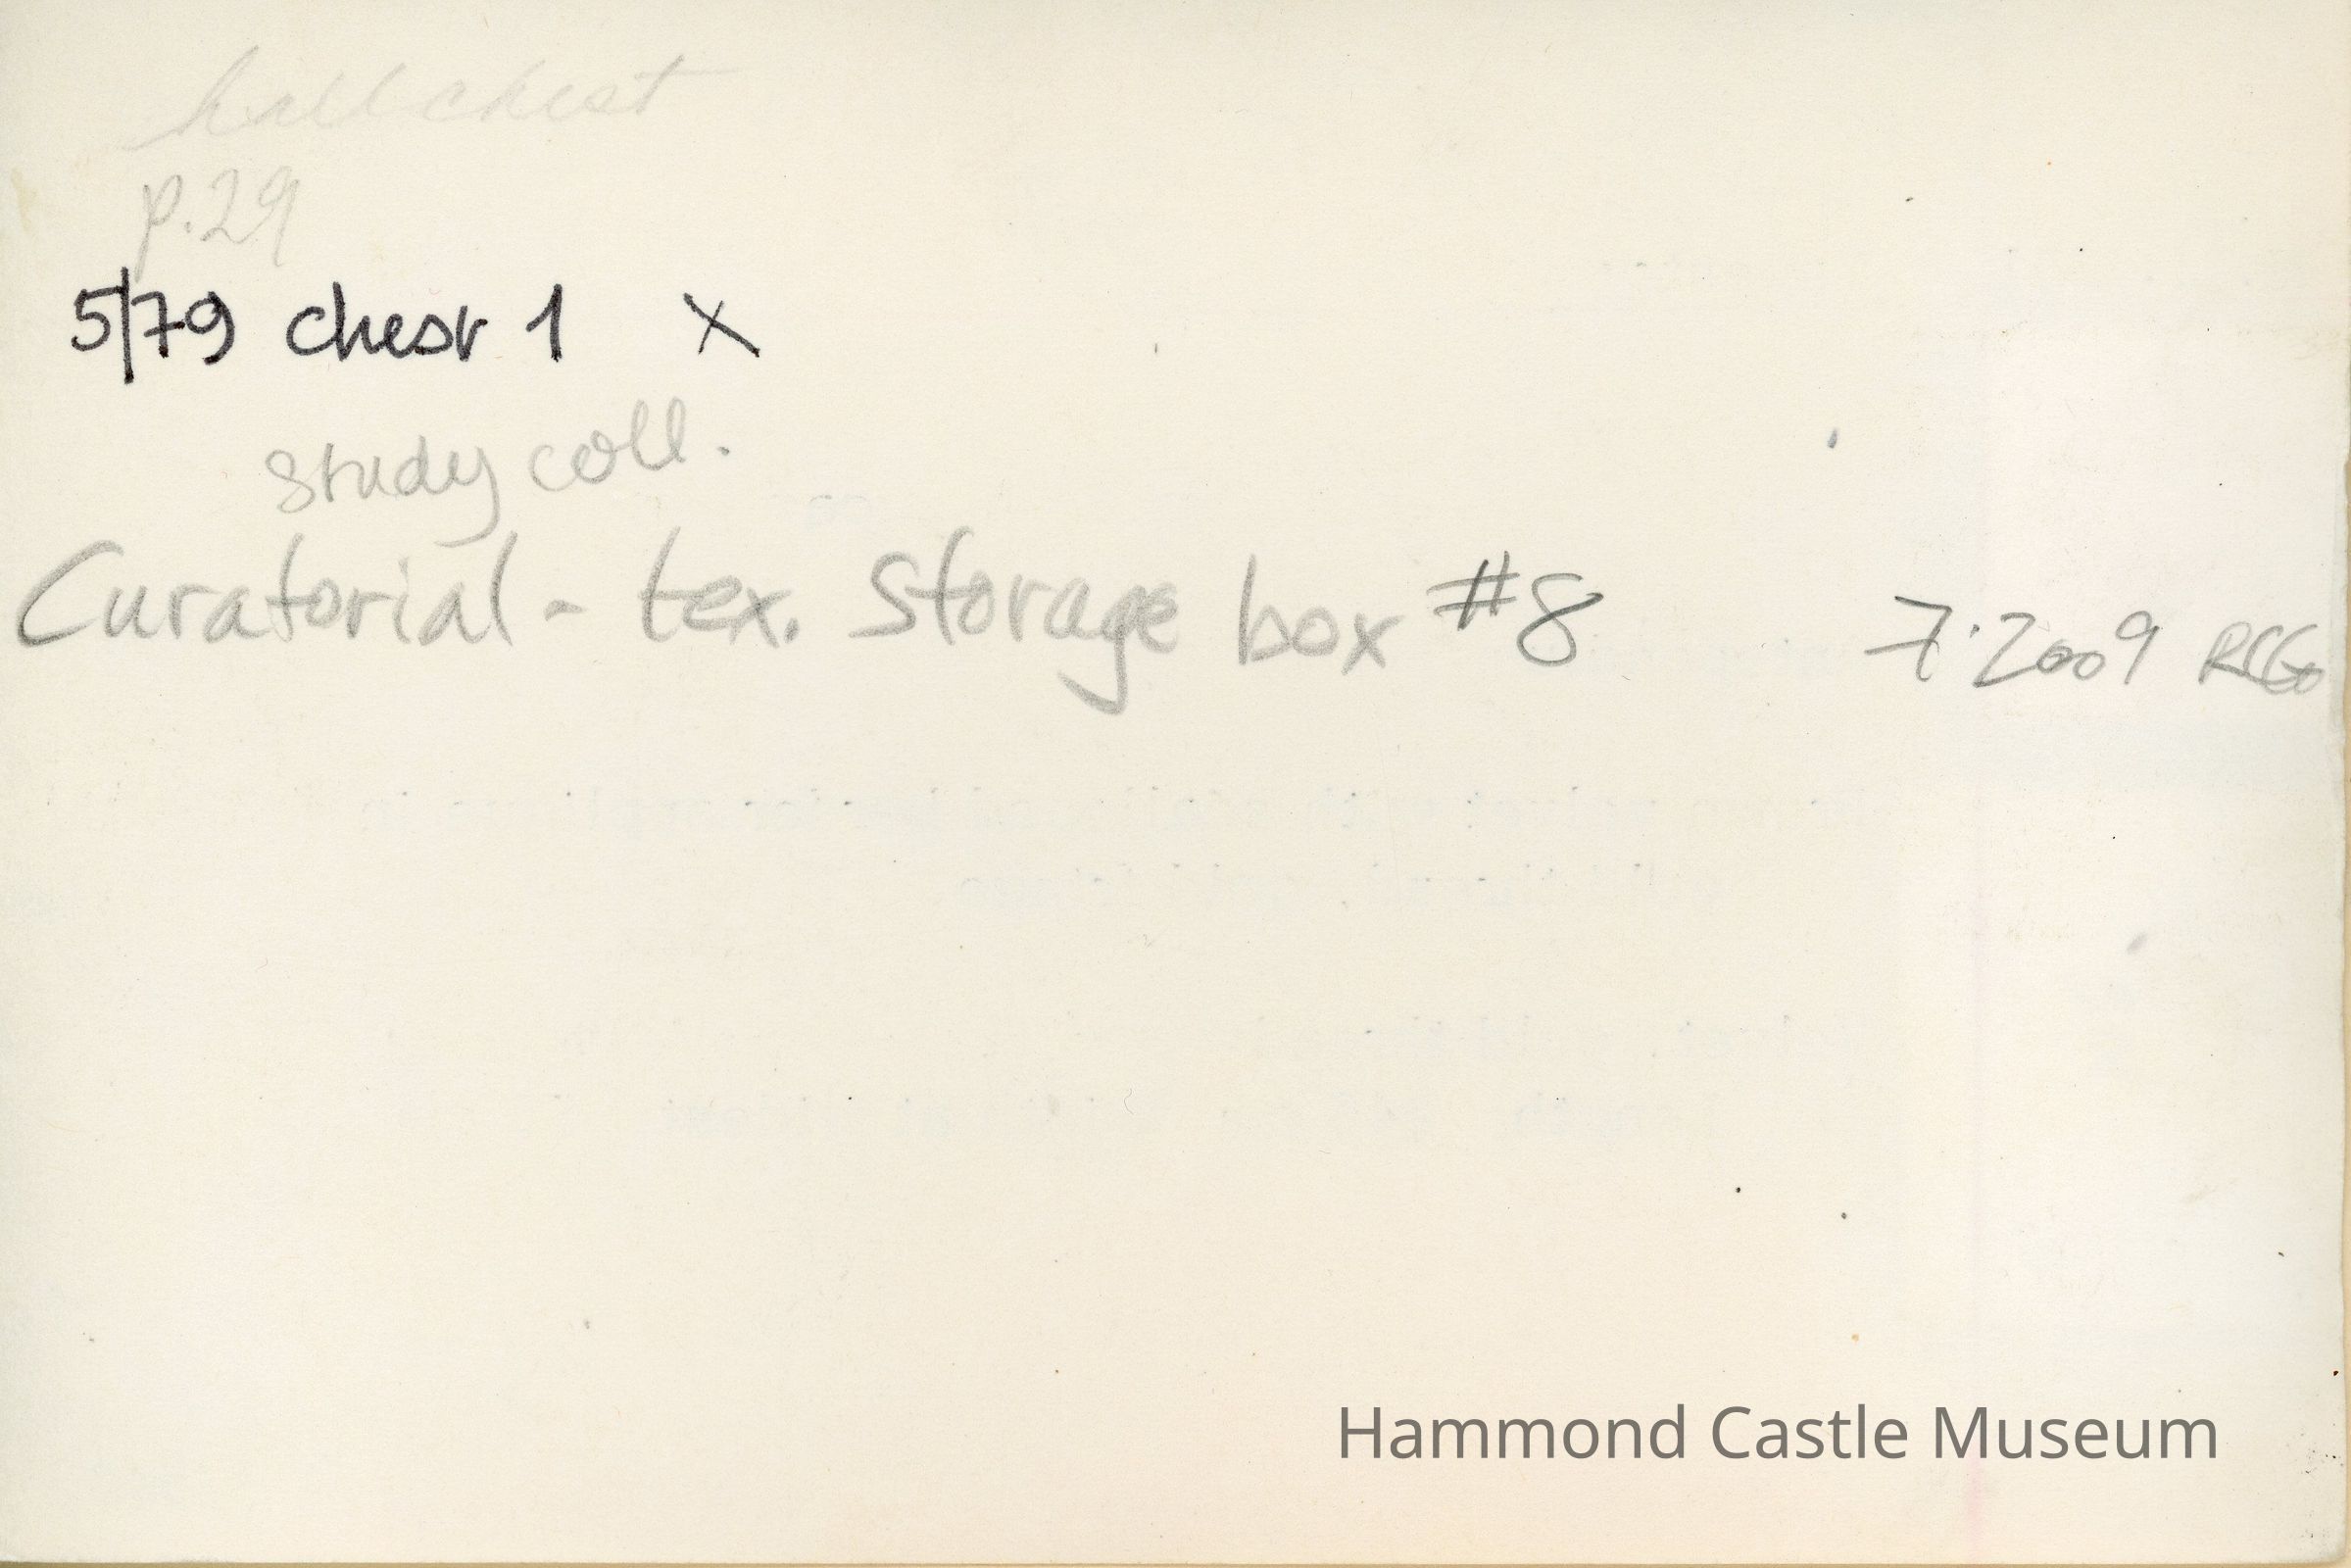 hall chest
p.29
5/79 chest 1 X
study coll.
Curatorial - tex. Storage box #8 7.2009
Hammond Castle Museum